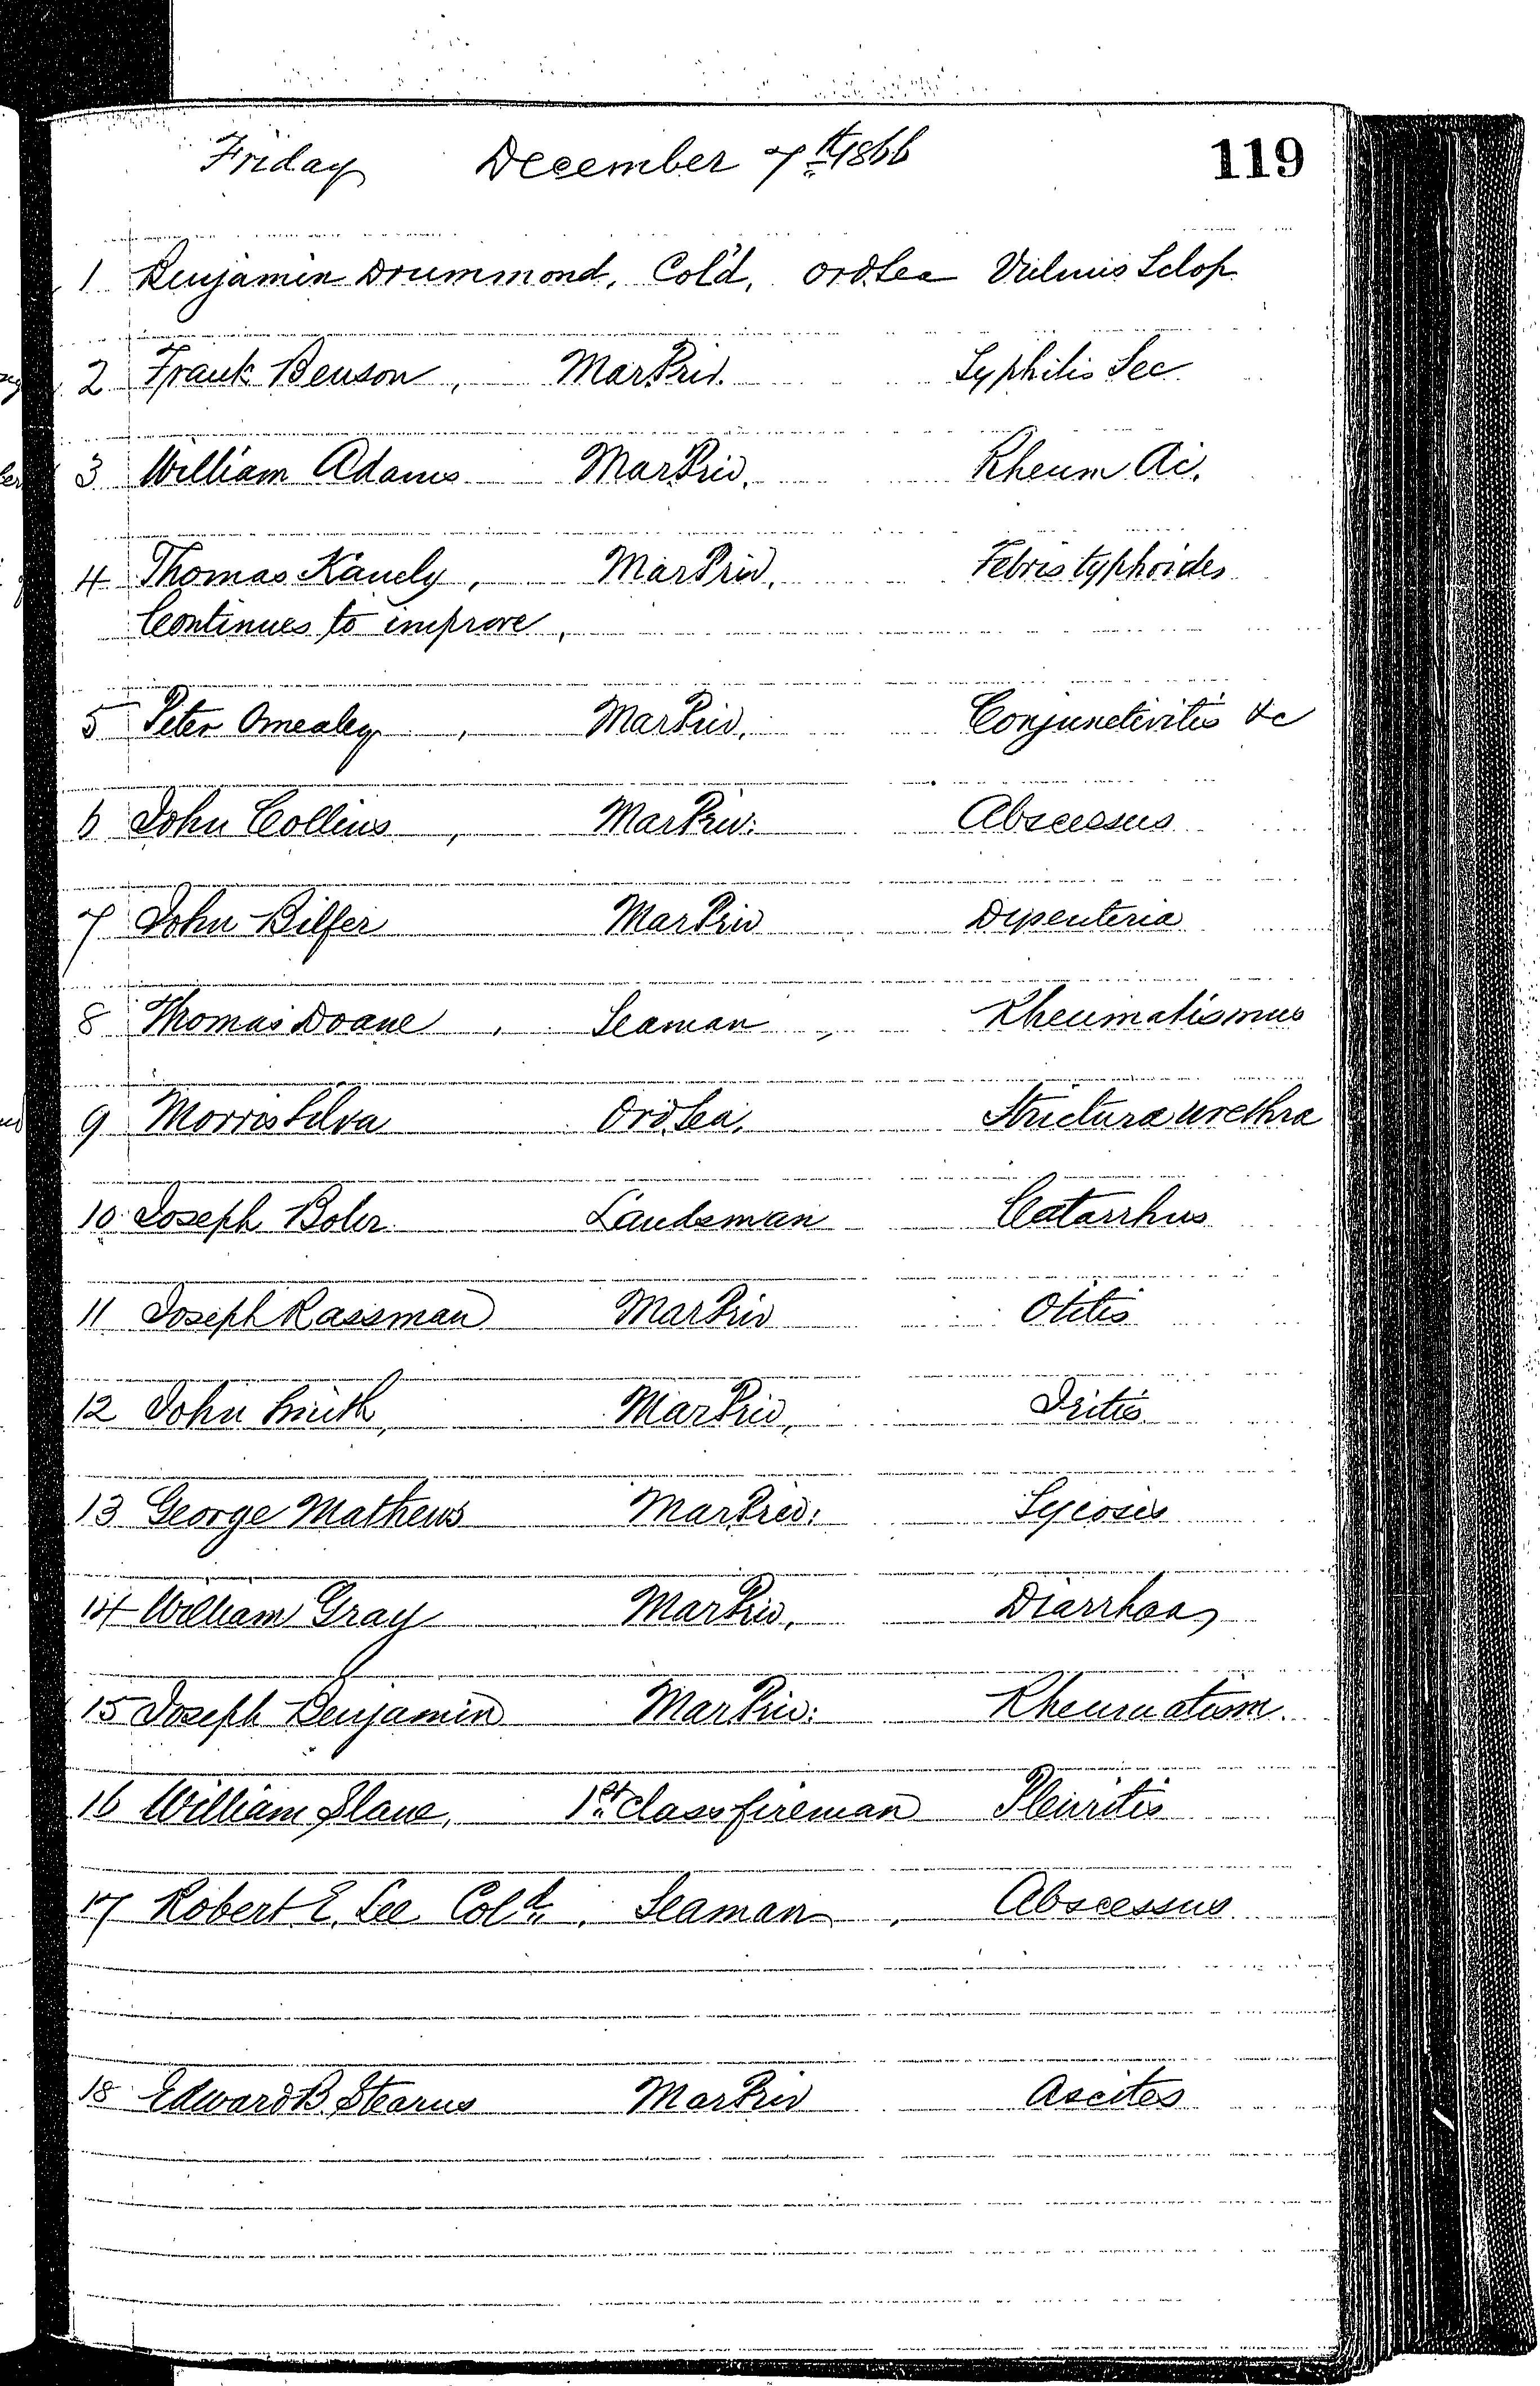 Friday December 7th 1866 119
1 Benjamin Drummond, Col'd, Ord Sea Vulnus Sclop
2 Frank Benson, Mar Priv. Syphilis Sec
3 William Adams Mar Priv. Rheum Ac.
4 Thomas Kanely, Mar Priv. Febris typhoides
Continues to improve,
5 Peter Omealey, Mar Priv. Conjunctivitis &c
6 John Collins, Mar Priv. Abscessus
7 John Bilfer Mar Priv Dysenteria
8 Thomas Doane, Seaman, Rheumatismus
9 Morris Silva Ord Sea. Strictura urethra
10 Joseph Boler Landsman Catarrhus
11 Joseph Rassman Mar Priv Otitis
12 John Smith, Mar Priv, Iritis
13 George Mathews Mar Priv: Sycosis
14 William Gray Mar Priv, Diarrhoea,
15 Joseph Benjamin Mar Priv: Rheumatism.
16 William Slane, 1st class fireman Pleuritis
17 Robert E. Lee Cold. Seaman, Abscessus
18 Edward B. Stearns Mar Priv Ascites